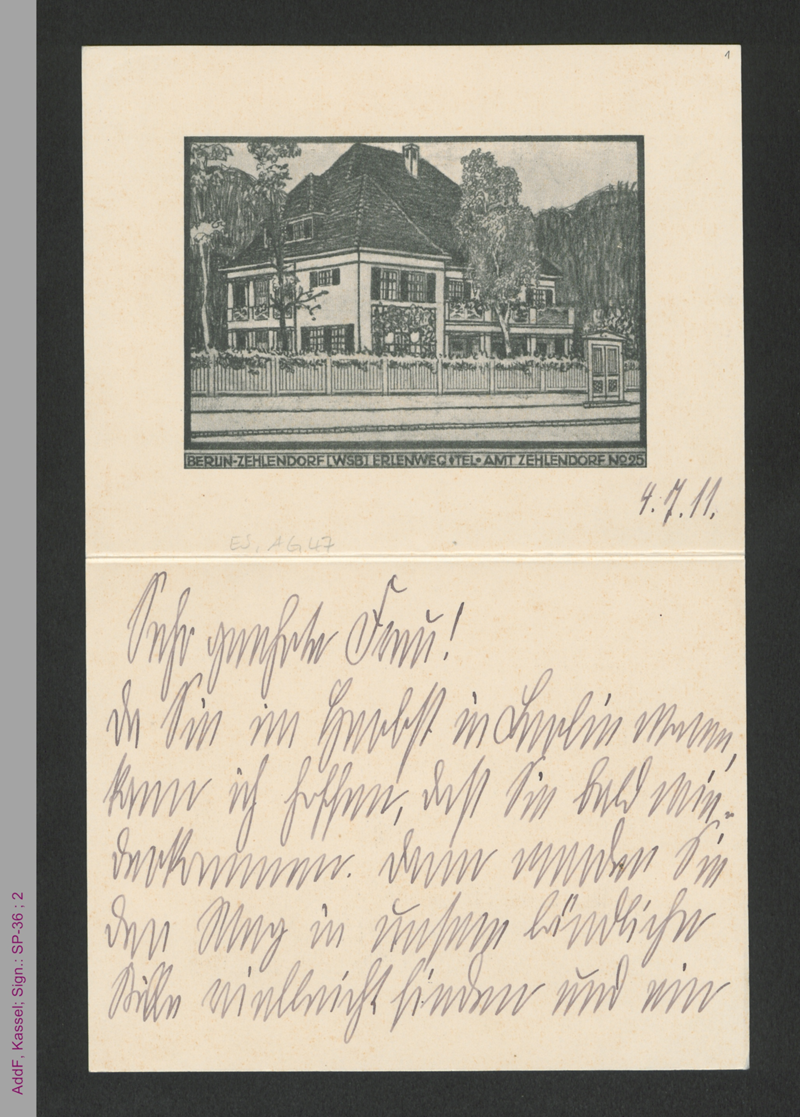 1
BERLIN-ZEHLENDORF [WSB] ERLENWEG • TEL • AMT ZEHLENDORF No 25
4.7.11.
Sehr geehrte Frau!
da Sie im Herbst in Berlin waren,
kann ich hoffen, daß Sie bald wie-
derkommen. Dann werden Sie
den Weg in unsere ländliche
Stille vielleicht finden und ein
AddF, Kassel; Sign.: SP-36 ; 2